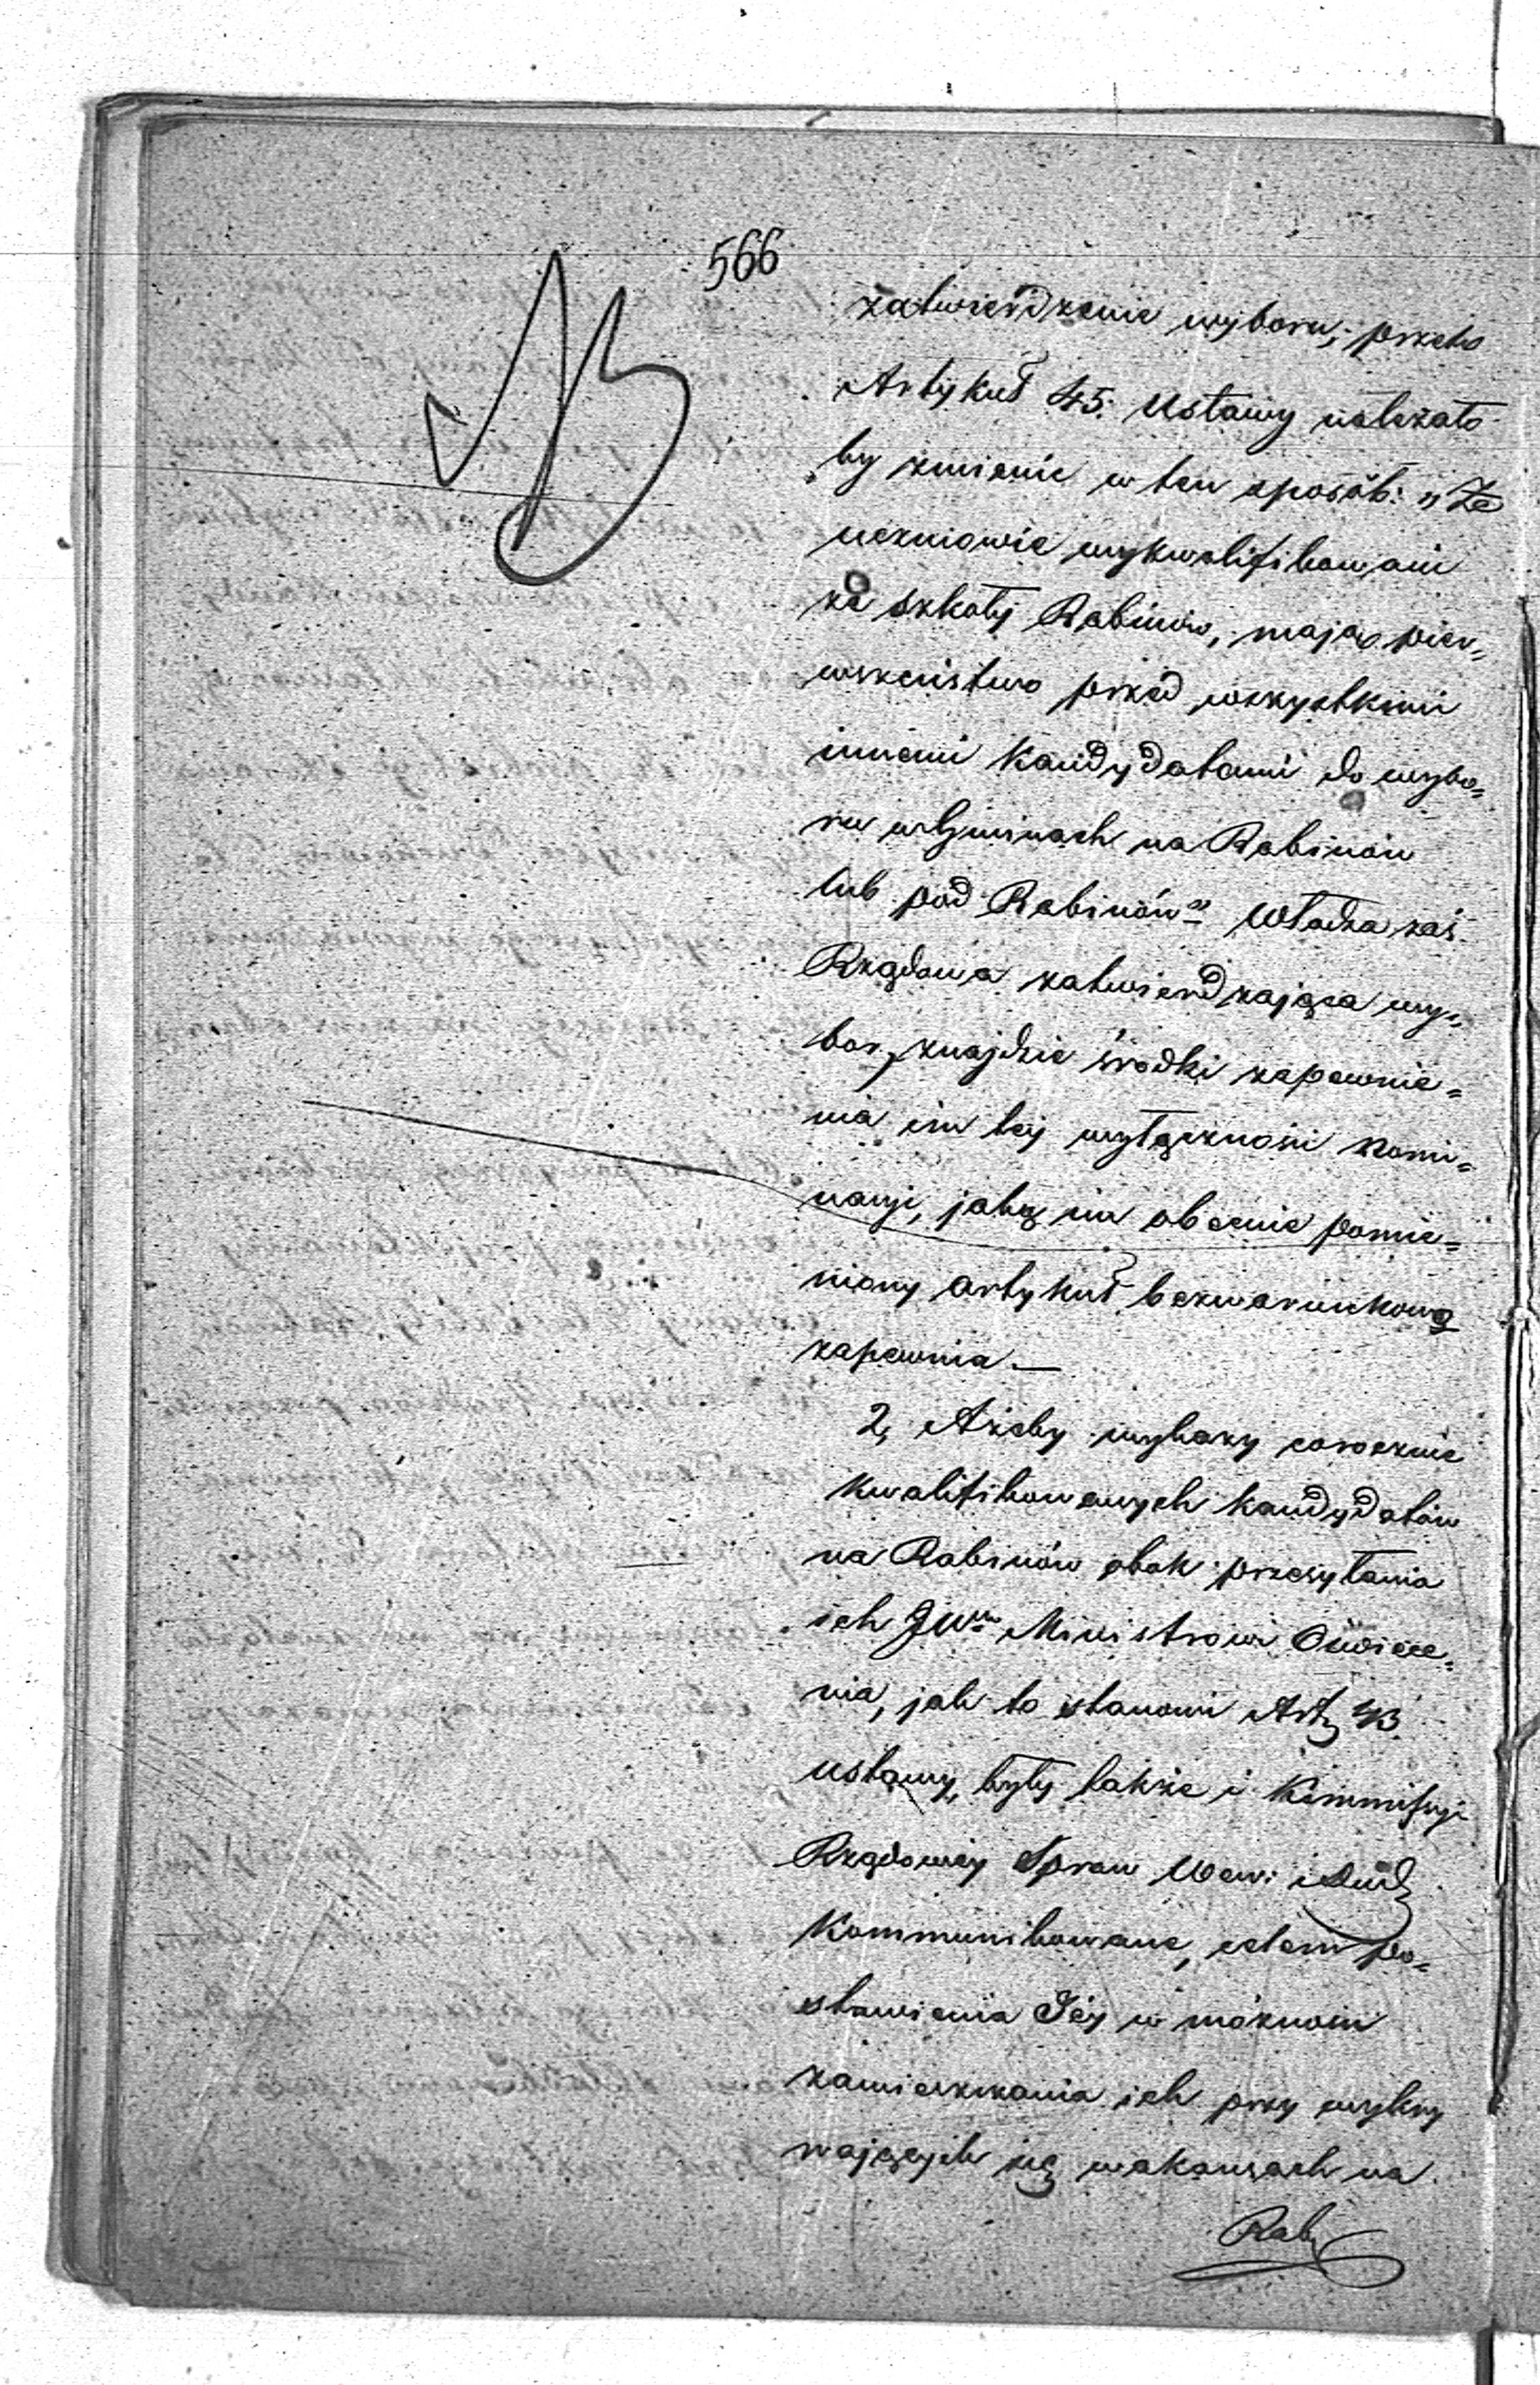 566
zatwierdzenie wyboru; przeto
Artykuł 45. Ustawy należało
by zmienić w ten sposób: „Że
uczniowie wykwalifikowani
ze szkoły Rabinów, mają pier„
wszeństwo przed wszystkimi
innemi Kandydatami do wybo=
ru w Gminach na Rabinów
lub pod Rabinów" Władza zaś
Rządowa zatwierdzająca wy„
bor, znajdzie środki zapewnie=
nia im tej wyłączności nomi=
nacyi, jaką im obecnie pomie=
niony artykuł bezwarunkową
zapewnia —
2, Ażeby wykazy corocznie
kwalifikowanych kandydatów
na Rabinów obok przesyłania
ich JWmu Ministrowi Oświece=
nia, jak to stanowi Art 43
ustawy, były także i Kommissyi
Rządowéj Spraw Wew: i Duch
Kommunikowane, celem po=
stawienia Jéj w możności
zamieszczania ich przy wykry
wających się wakansach na
Rab